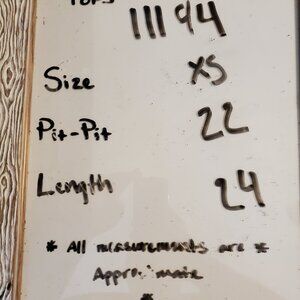 Tops
111194
Size XS
Pit-Pit 22
Length 24
* All measurements are *
Approximate
*